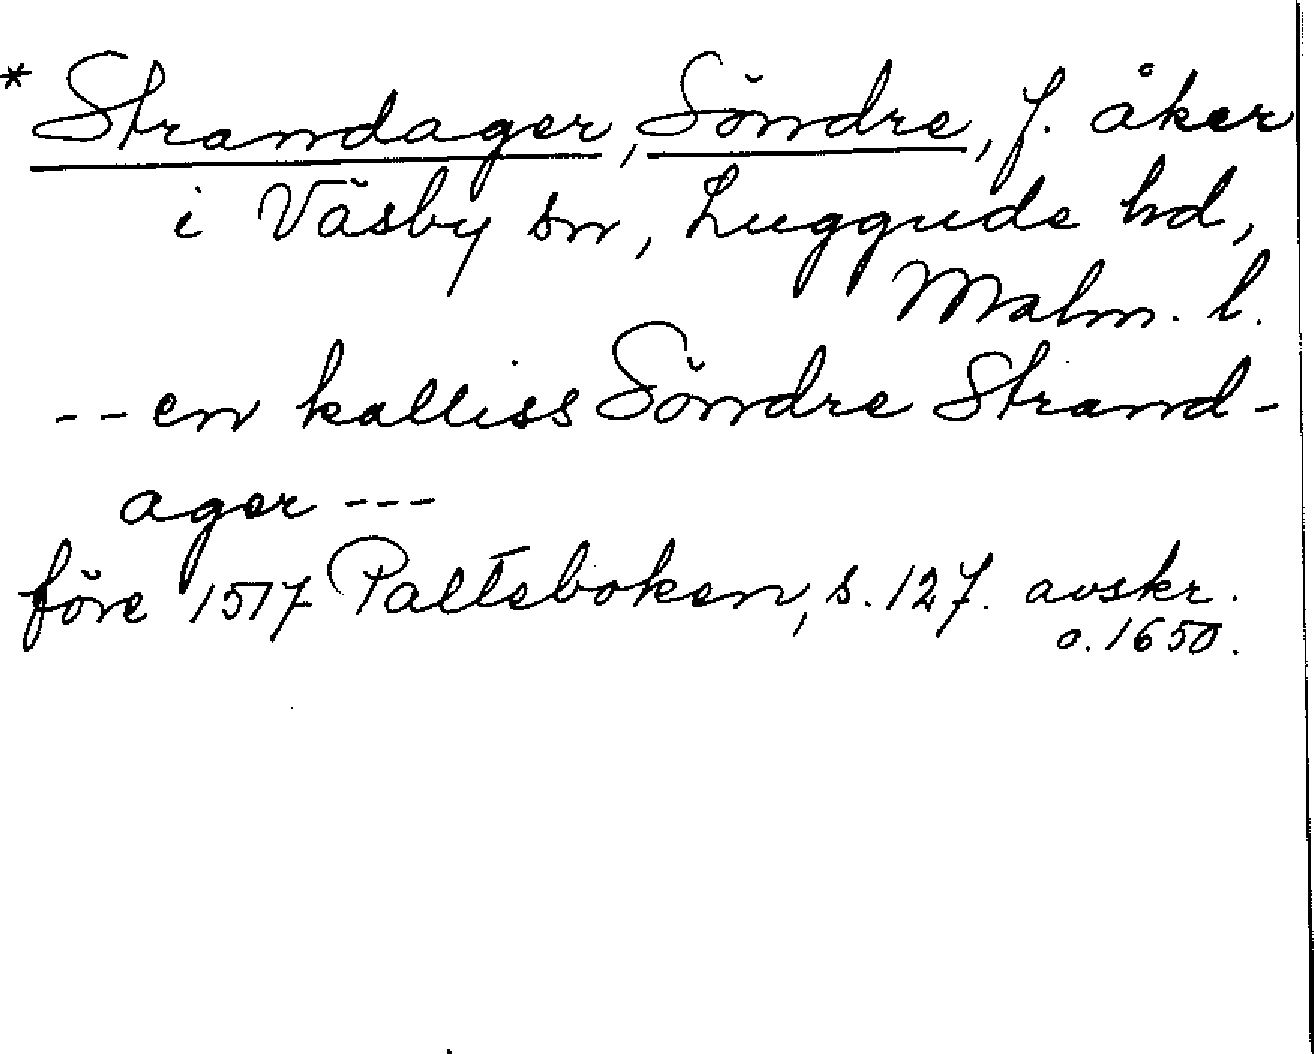 * Strandager, Söndre, f. åker
i Väsby sn, Luggude hd,
Malm. l.
-- en kalliss Söndre Strand-
ager ---
före 1517 Palteboken, s. 127. avskr.
o. 1650.